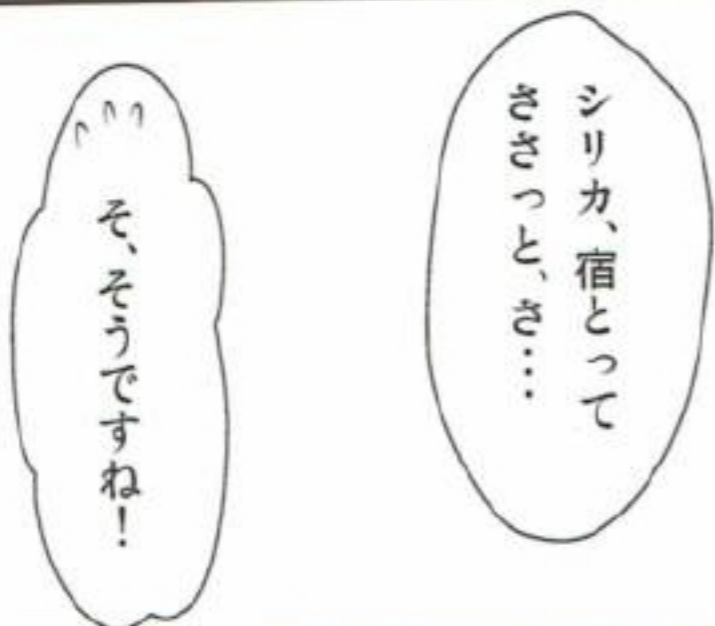 シリカ、宿とって
ささっと、さ・・・
そ、そうですね！